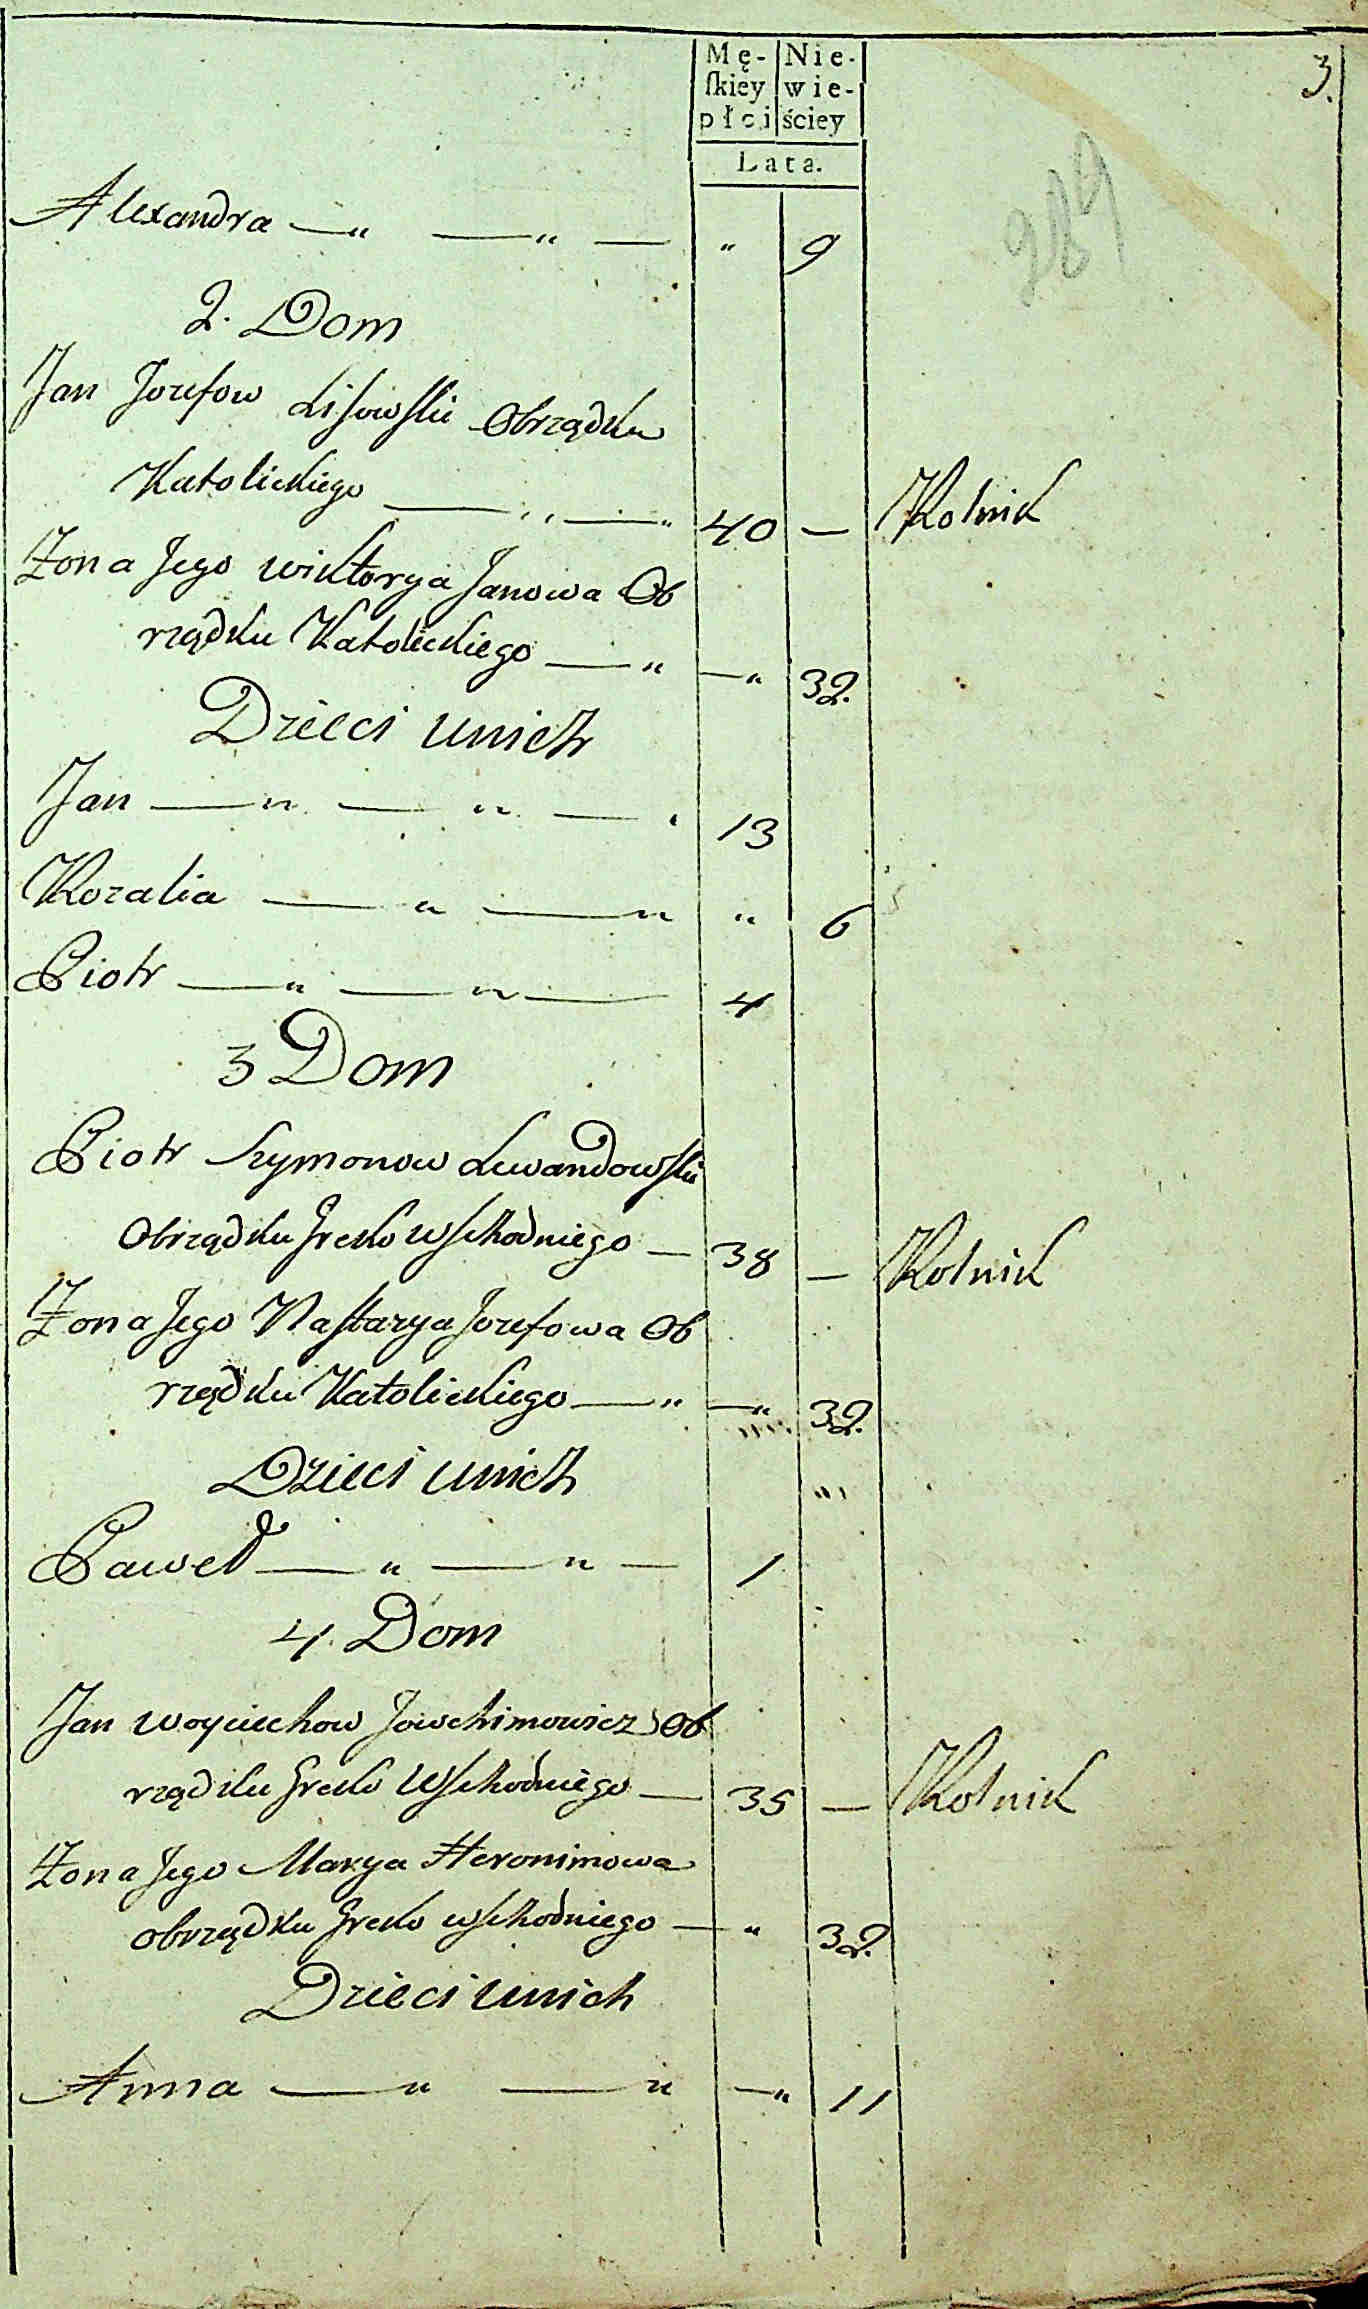 3.
Mę- Nie-
skiey wie-
płci ściey
Lata.
289
Alexandra — " — " — " 9
2. Dom
Jan Jozefow Lisowski Obrządku
Katolickiego — " — " 40 — Rolnik
Żona Jego Wiktorya Janowa Ob
rządku Katolickiego — " — " 32.
Dzieci unich
Jan — " — " — " 13
Rozalia — " — " " 6
Piotr — " — " — 4
3 Dom
Piotr Szymonow Lewandowski
Obrządku Greko Wschodniego — 38 — Rolnik
Żona Jego Nastazya Jozefowa Ob
rządku Katolickiego — " — " 32.
Dzieci unich
Paweł — " — " — 1
4. Dom
Jan Woyciechow Jowchimowicz Ob
rządku Greko Wschodniego — 35 — Rolnik
Żona Jego Marya Heronimowa
obrządku Greko wschodniego — " 32.
Dzieci unich
Anna — " — " — " 11